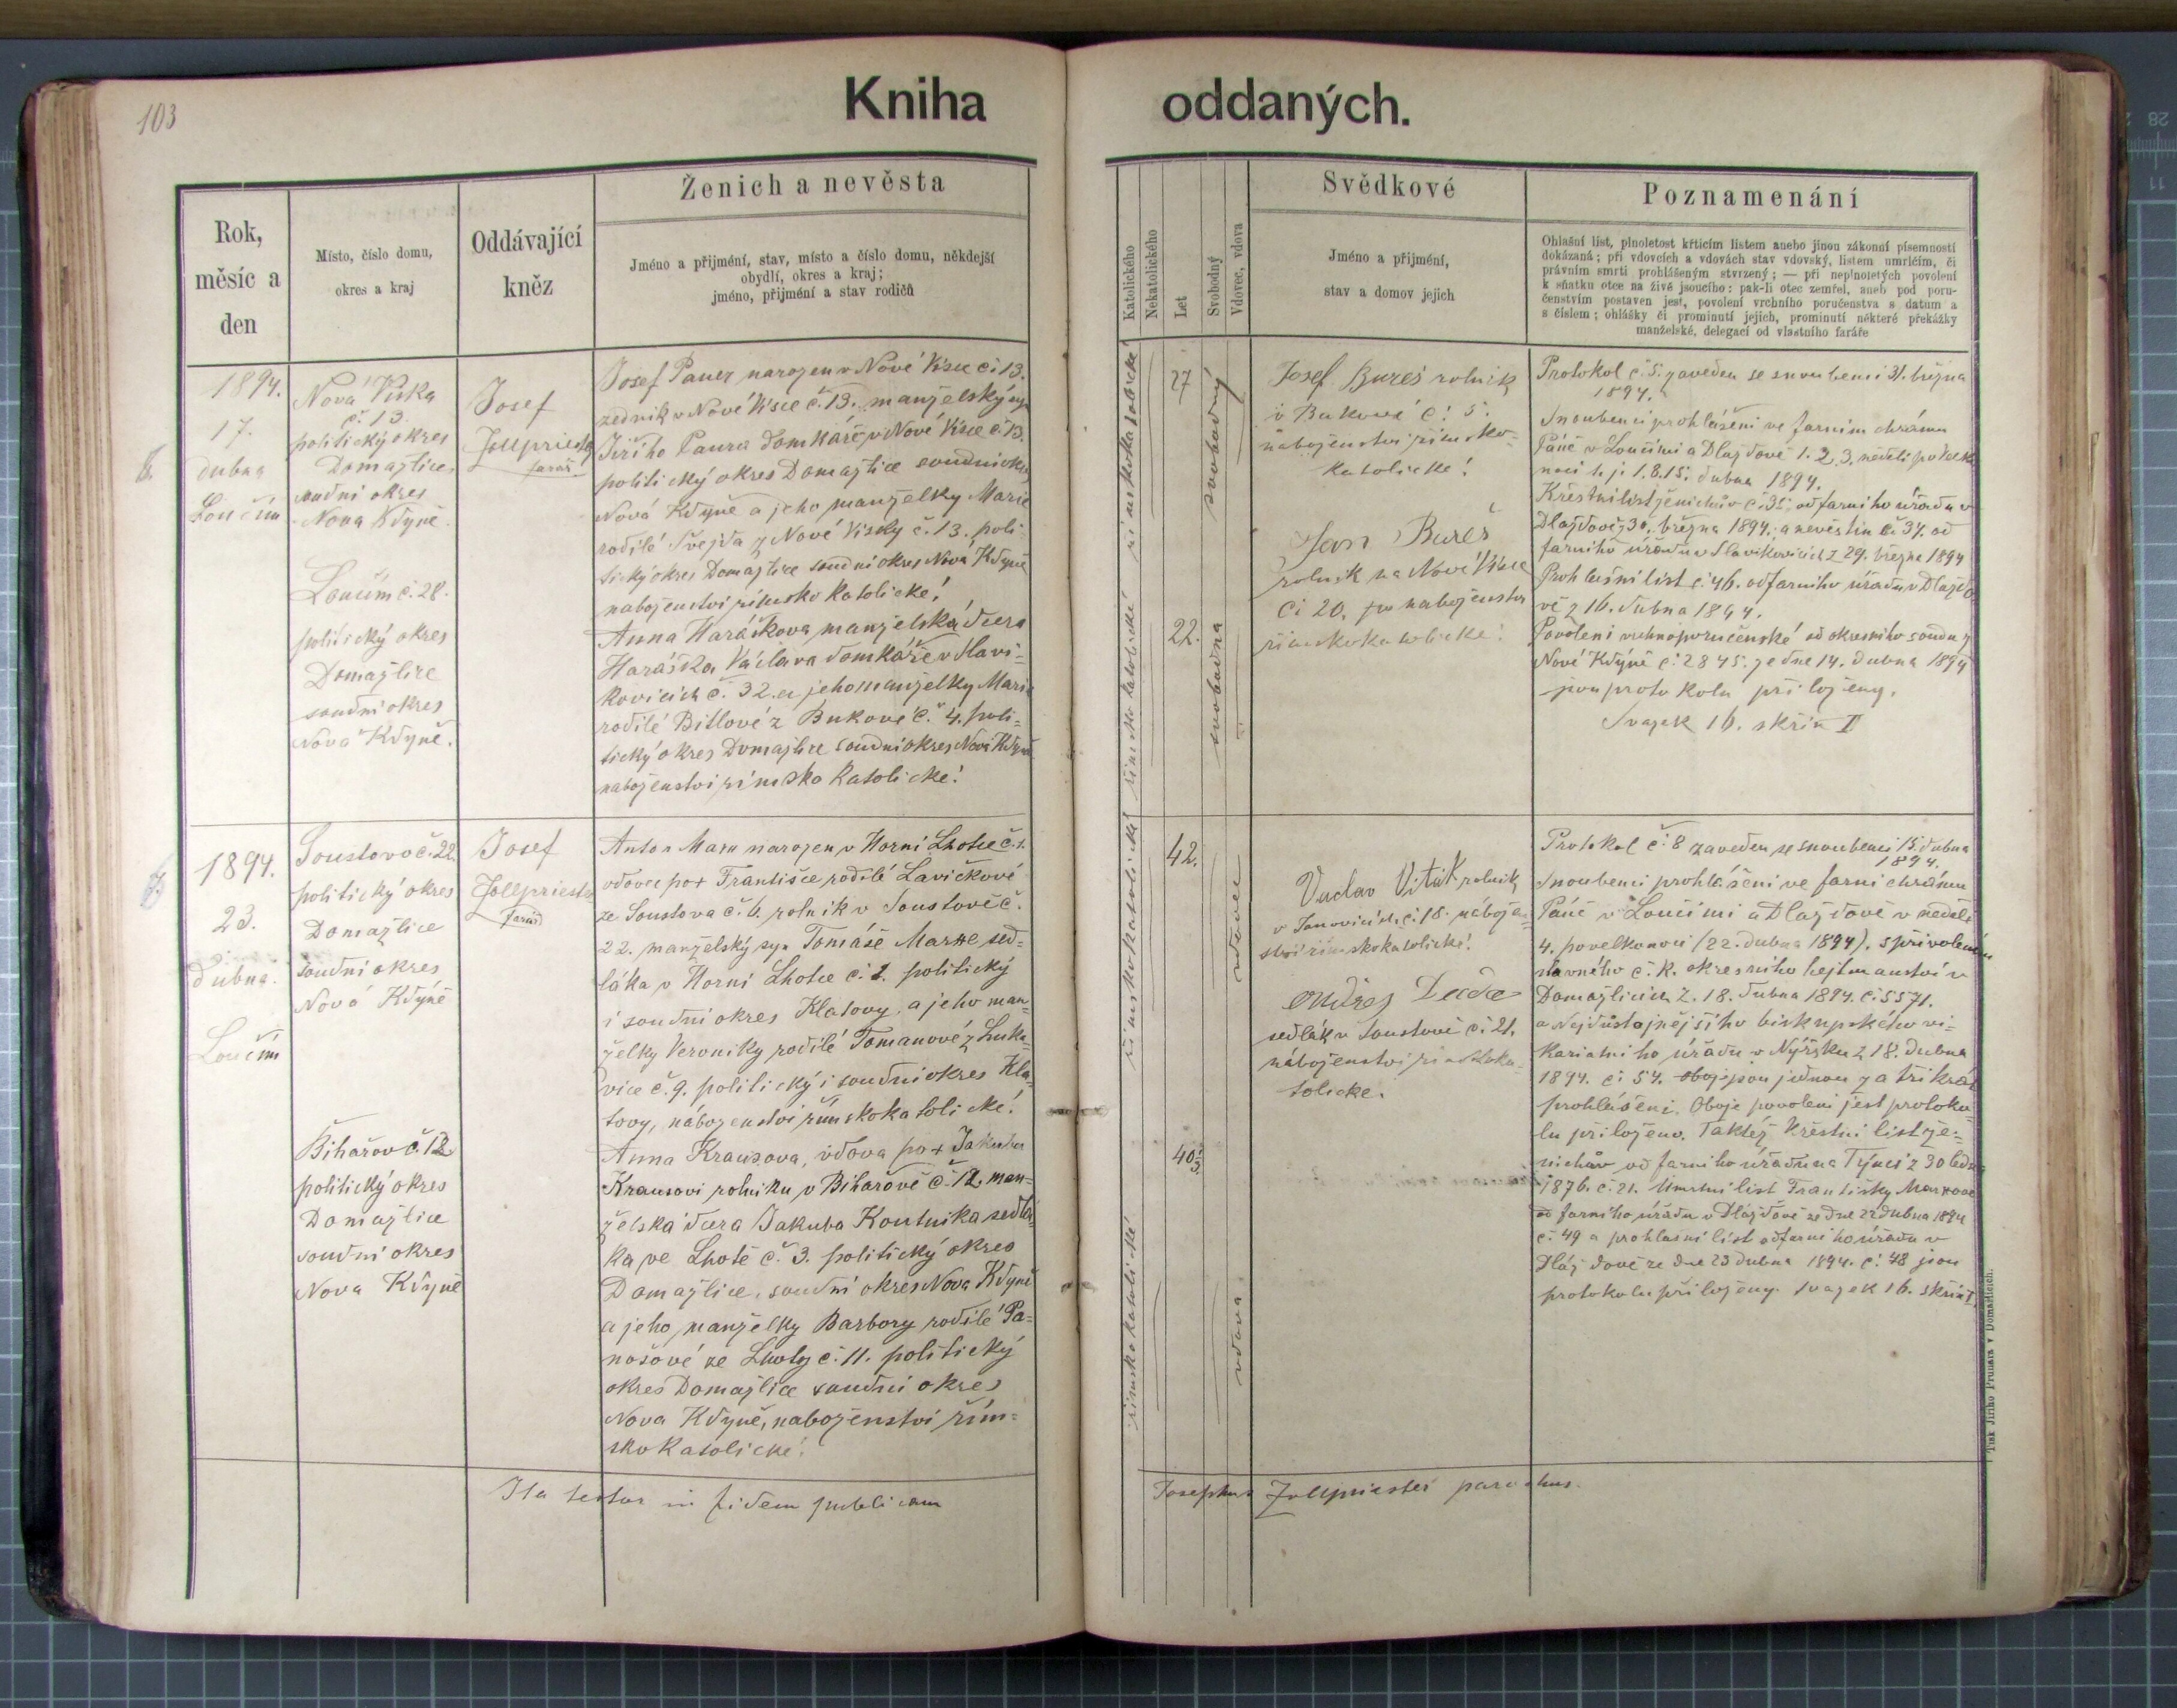 103
Kniha oddaných.
Rok,
měsíc a
den
Místo, číslo domu,
okres a kraj
Oddávající
kněz
Ženich a nevěsta
Jméno a přijmění, stav, místo a číslo domu, někdejší
obydlí, okres a kraj;
jméno, přijmění a stav rodičů
Katolického
Nekatolického
Let
Svobodný
Vdovec, vdova
Svědkové
Jméno a přijmění,
stav a domov jejich
Poznamenání
Ohlašní list, plnoletost křticím listem anebo jinou zákonní písemností
dokázaná; při vdovcích a vdovách stav vdovský, listem umrlčím, či
právním smrti prohlášeným stvrzený; — při neplnoletých povolení
k sňatku otce na živě jsoucího: pak-li otec zemřel, aneb pod poru-
čenstvím postaven jest, povolení vrchního poručenstva s datum a
s číslem; ohlášky či prominutí jejich, prominutí některé překážky
manželské, delegací od vlastního faráře
1894.
17.
dubna
Loučím
Nová Víska
č. 13
politický okres
Domažlice
soudní okres
Nova Kdyně.
Loučím č. 28.
politický okres
Domažlice
soudní okres
Nova Kdyně.
Josef
Zollpriester
farář
Josef Pauer narozen v Nové Vísce či 13.
zedník v Nové Vísce č. 13. manželský syn
Jiřího Paura domkáře v Nové Vísce č. 13.
politický okres Domažlice soudní okres
Nová Kdyně a jeho manželky Marie
rodilé Švejda z Nové Vísky č. 13. poli-
tický okres Domažlice soudní okres Nová Kdyně
naboženství římsko katolické!
Anna Haráškova manželská dcera
Haráška Václava domkáře v Slavi-
kovicích č. 32. a jeho manželky Marie
rodilé Bitlové z Bukové č. 4. poli-
tický okres Domažlice soudní okres Nová Kdyně
naboženstvi římsko katolické!
římskokatolické
římskokatolické
27
22.
svobodný
svobodna
Josef Bureš rolník
v Bukové č. 5.
naboženstvi římsko-
katolické!
Jan Bureš
rolník na Nové Vísce
či 20. naboženstvi
římskokatolické!
Protokol č. 5. zaveden se snoubenci 31. března
1894.
Snoubenci prohlášeni ve farním chrámu
Páně v Loučimi a Dlažďově 1. 2. 3. neděli po velko-
noci t. j. 1. 8. 15. dubna 1894.
Křestní list ženichův č. 35. od farního úřadu v
Dlažďově z 30. března 1894. a nevěstin či 34. od
farního úřadu v Slavikovicích z 29. března 1894
Prohlašní list č. 46. od farního úřadu v Dlažďo-
vě z 16. dubna 1894.
Povolení vrchnoporučenské od okresního soudu z
Nové Kdýně č. 2845. ze dne 14. dubna 1894
jsou protokolu přiloženy.
Svazek 16. skříň II
1894.
23.
dubna.
Loučím
Soustovo č. 22.
politický okres
Domažlice
soudní okres
Nová Kdyně
Bihařov č. 12
politický okres
Domažlice
soudní okres
Nova Kdyně
Josef
Zollpriester
farář
Anton Marx narozen v Horní Lhotce č. 1.
vdovec po + Františce rodilé Lavičkové
ze Soustova č. 6. rolník v Soustově č.
22. manželský syn Tomáše Marxe sed-
láka v Horní Lhotce či 1. politický
i soudní okres Klatovy, a jeho man-
želky Veroniky rodilé Tomanové z Luka-
vice č. 9. politický i soudní okres Kla-
tovy, náboženství římskokatolické!
Anna Krausova, vdova po + Jakubu
Krausovi rolniku v Bihařově č. 12. man-
želská dcera Jakuba Koutnika sedlá-
ka ve Lhotě č. 3. politický okres
Domažlice, soudní okres Nova Kdyně
a jeho manželky Barbory rodilé Pa-
nošové ze Lhoty č. 11. politický
okres Domažlice soudní okres
Nova Kdyně, naboženství řím-
skokatolické.
římskokatolické
římskokatolické
42.
40
vdovec
vdova
Vaclav Viták rolník
v Janovicích č. 18. nábožen-
ství římskokatolické!
Ondřej Duda
sedlák v Soustově či 21.
náboženstvi římskoka-
tolické.
Protokol č. 8 zaveden se snoubenci 15. dubna
1894.
Snoubenci prohlášeni ve farní chrámu
Páně v Loučimi a Dlažďově v neděli
4. povelkonoci (22. dubna 1894). s přivolením
slavného c. k. okresního hejtmanství v
Domažlicích z. 18. dubna 1894. č. 5571.
a Nejdůstojnějšího biskupského vi-
kariatního úřadu v Nýrsku z 18. dubna
1894. či 54. obojí jsou jednou za třikrát
prohlášeni. Oboje povolení jest protoko-
lu přiloženo. Taktéž křestní list že-
nichův od farního úřadu na Týnci z 30 ledna
1876. č. 21. Umrtní list Františky Marxove
od farního úřadu v Dlažďově ze dne 22 dubna 1894
č. 49 a prohlašní list od farního úřadu v
Dlážďově ze dne 23 dubna 1894. č. 48 jsou
protokolu přiloženy. Svazek 16. skříň I.
Ita testor in fidem publicam
Josephus Zollpriester parochus.
Tisk Jiřího Prunara v Domažlicích.